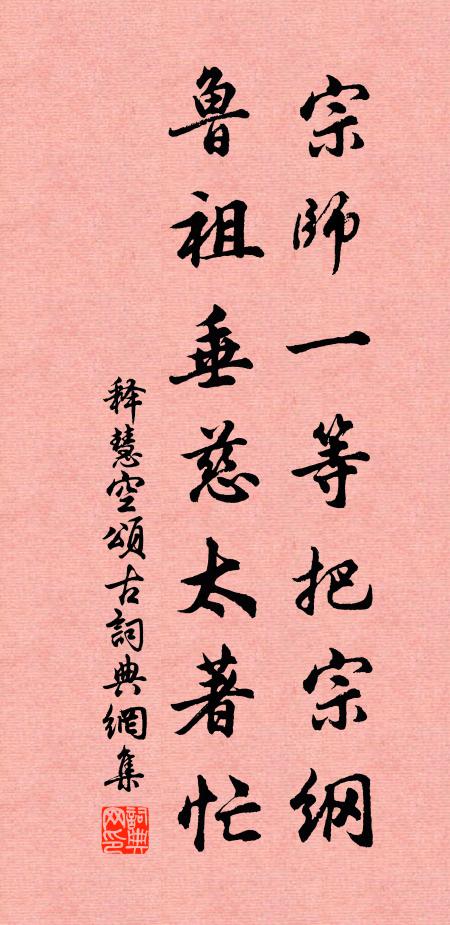 宗師一等把宗纲
魯祖垂慈太著忙
释慧空頌古詞典網集
詞典网印